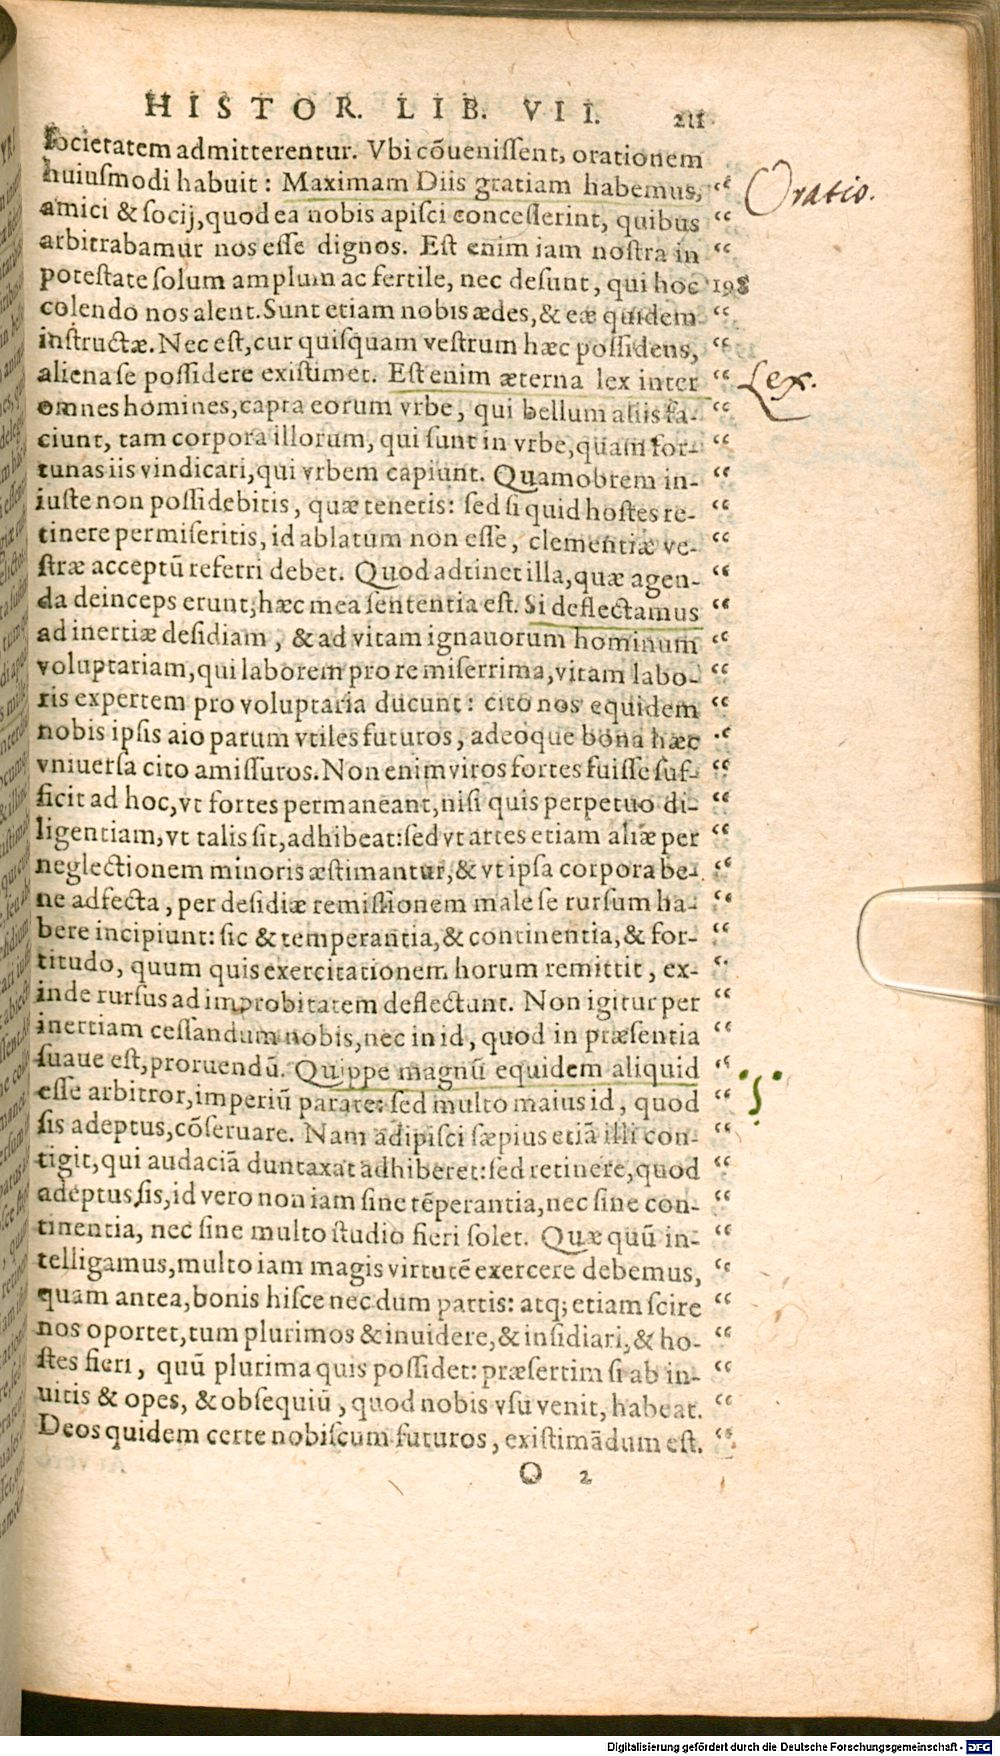 HISTOR. LIB. VII. 211
ſocietatem admitterentur. Vbi cõueniſſent, orationem
huiuſmodi habuit: Maximam Diis gratiam habemus, “ Oratio.
amici & ſocij, quod ea nobis apiſci conceſſerint, quibus “
arbitrabamur nos eſſe dignos. Eſt enim iam noſtra in “
poteſtate ſolum amplum ac fertile, nec deſunt, qui hoc 198
colendo nos alent. Sunt etiam nobis ædes, & eæ quidem “
inſtructæ. Nec eſt, cur quiſquam veſtrum hæc poſſidens, “
aliena ſe poſſidere exiſtimet. Eſt enim æterna lex inter “ Lex.
omnes homines, capta eorum vrbe, qui bellum aliis fa- “
ciunt, tam corpora illorum, qui ſunt in vrbe, quam for- “
tunas iis vindicari, qui vrbem capiunt. Quamobrem in- “
iuſte non poſſidebitis, quæ tenetis: ſed ſi quid hoſtes re- “
tinere permiſeritis, id ablatum non eſſe, clementiæ ve- “
ſtræ acceptũ referri debet. Quod adtinet illa, quæ agen- “
da deinceps erunt, hæc mea ſententia eſt. Si deflectamus “
ad inertiæ deſidiam, & ad vitam ignauorum hominum “
voluptariam, qui laborem pro re miſerrima, vitam labo- “
ris expertem pro voluptaria ducunt: cito nos equidem “
nobis ipſis aio parum vtiles futuros, adeoque bona hæc “
vniuerſa cito amiſſuros. Non enim viros fortes fuiſſe ſuf- “
ficit ad hoc, vt fortes permaneant, niſi quis perpetuo di- “
ligentiam, vt talis ſit, adhibeat: ſed vt artes etiam aliæ per “
neglectionem minoris æſtimantur, & vt ipſa corpora be- “
ne adfecta, per deſidiæ remiſſionem male ſe rurſum ha- “
bere incipiunt: ſic & temperantia, & continentia, & for- “
titudo, quum quis exercitationem horum remittit, ex- “
inde rurſus ad improbitatem deflectunt. Non igitur per “
inertiam ceſſandum nobis, nec in id, quod in præſentia “
ſuaue eſt, proruendũ. Quippe magnũ equidem aliquid “
eſſe arbitror, imperiũ parare: ſed multo maius id, quod “
ſis adeptus, cõſeruare. Nam adipiſci ſæpius etiã illi con- “
tigit, qui audaciã duntaxat adhiberet: ſed retinere, quod “
adeptus ſis, id vero non iam ſine tẽperantia, nec ſine con- “
tinentia, nec ſine multo ſtudio fieri ſolet. Quæ quũ in- “
telligamus, multo iam magis virtutẽ exercere debemus, “
quam antea, bonis hiſce nec dum partis: atq; etiam ſcire “
nos oportet, tum plurimos & inuidere, & inſidiari, & ho- “
ſtes fieri, quũ plurima quis poſſidet: præſertim ſi ab in- “
uitis & opes, & obſequiũ, quod nobis vſu venit, habeat. “
Deos quidem certe nobiſcum futuros, exiſtimãdum eſt. “
O 2
Digitalisierung gefördert durch die Deutsche Forschungsgemeinschaft - DFG